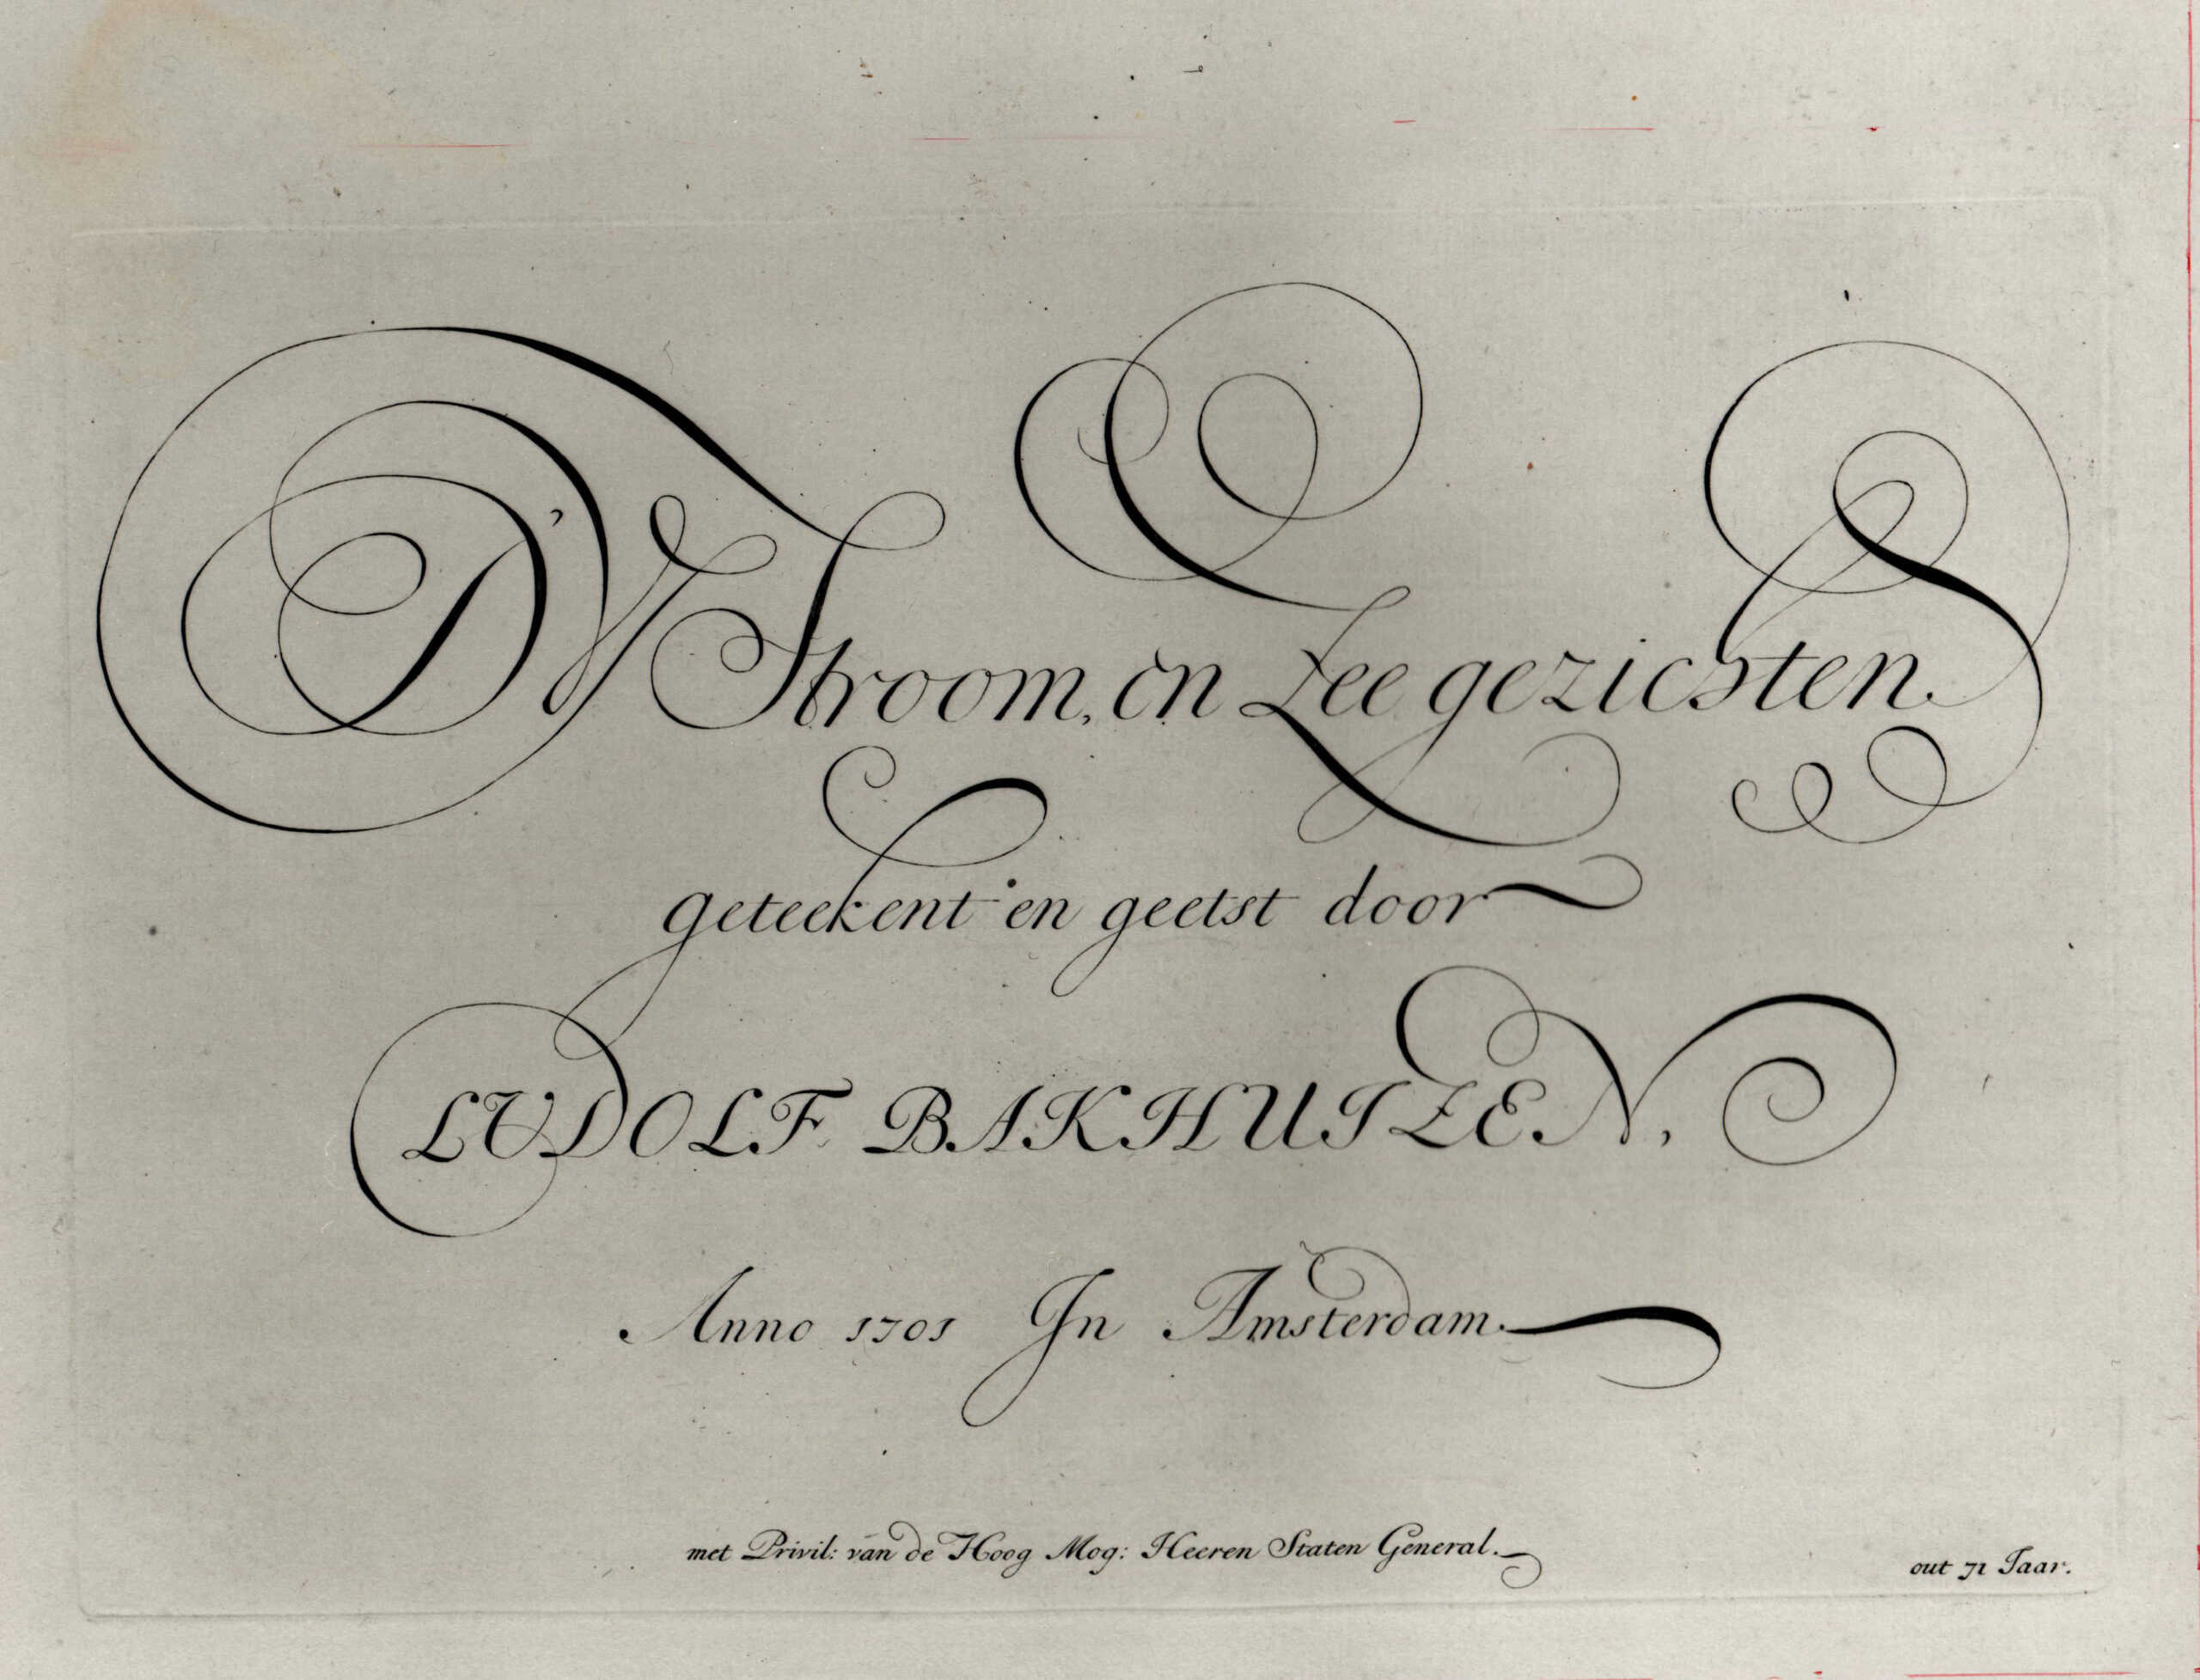 D'Y Stroom, en Zee gezichten
geteekent en geetst door
LUDOLF BAKHUIZEN,
Anno 1701 In Amsterdam.
met Privil: van de Hoog Mog: Heeren Staten General.
out 71 Jaar.